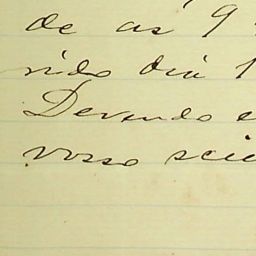 de as 9
rido dia 1
Devendo e
vosso scie